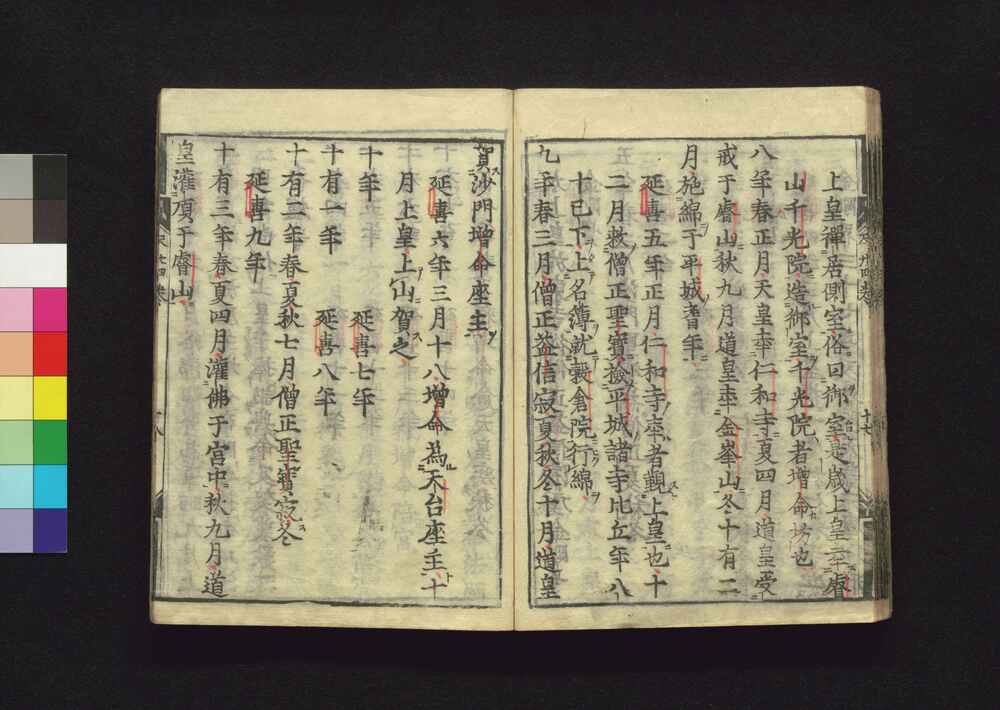 上皇禪居側室俗曰御室是歳上皇幸睿
山千光院造御室千光院者增命坊也
八年春正月天皇幸仁和寺夏四月道皇受
戒于睿山秋九月道皇幸金峯山冬十有二
月施綿于平城耆年
延喜五年正月仁和寺幸者覲上皇也十
二月敕僧正聖寳撿平城諸寺比丘年八
十已下上名簿就穀倉院行綿
九年春三月僧正益信寂夏秋冬十月道皇
賀沙門增命座主
延喜六年三月十八增命為天台座主十
月上皇上山賀之
十年 延喜七年
十有一年 延喜八年
十有二年春夏秋七月僧正聖寳寂冬
延喜九年
十有三年春夏四月灌佛于宮中秋九月道
皇灌頂于睿山
十七
十八